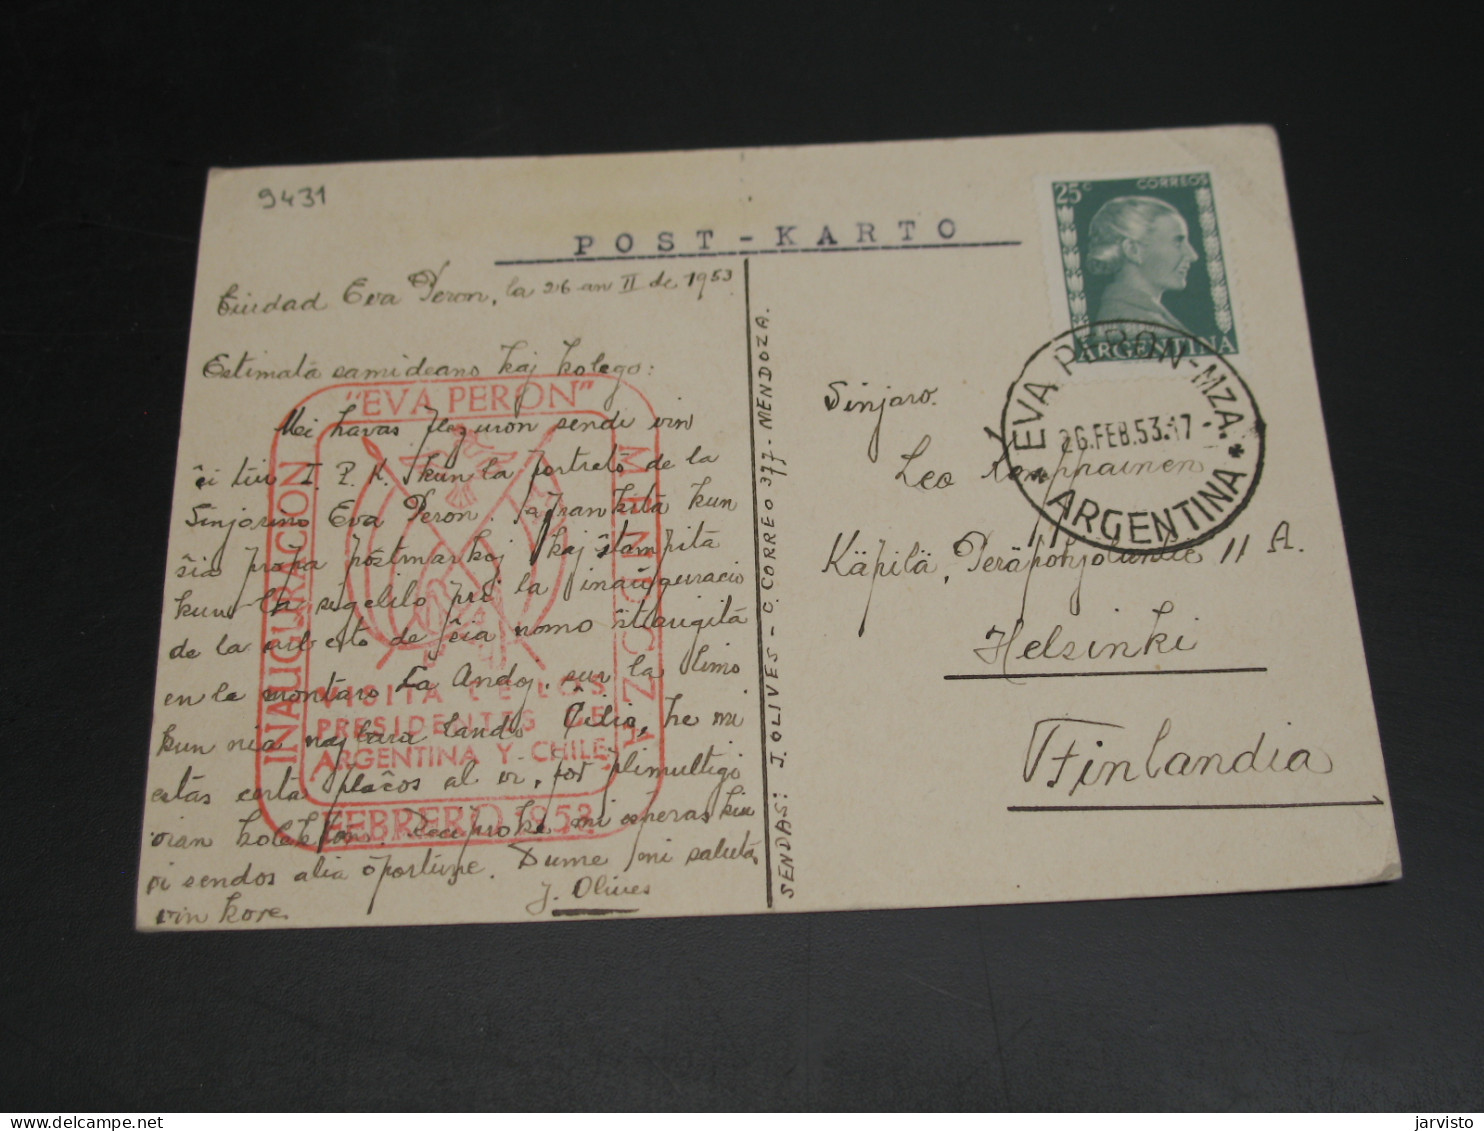 9431
POST-KARTO
Ciudad Eva Peron, la 26 an II de 1953
Estimata samideano kaj kolego:
Mi havas plezuron sendi vin
ĉi tiu I. P. K. kun la portreto de la
Sinjorino Eva Peron.
sia propa postmarkoj kaj stampita
kun la sigelilo pri la inauguracio
de la de nomo
en la montaro La Andoj, sur la limo
kun nia najbara lando Ĉilio, ke mi
estas certa plaĉos al vi, por plimultigi
vian Reciproke mi esperas kiu
vi sendos alia oportune. Dume mi saluta
vin kore.
J. Olives
"EVA PERON"
INAUGURACION
MENDOZA
VISITA DE LOS
PRESIDENTES DE
ARGENTINA Y CHILE
FEBRERO 1953
SENDAS: J. OLIVES - C. CORREO 377 - MENDOZA.
25c CORREOS
ARGENTINA
EVA PERON-MZA.
26.FEB.53.17
* ARGENTINA *
Sinjaro.
Leo Kemppainen
Käpilä, Peräpohjolantie 11 A.
Helsinki
Finlandia
www.delcampe.net
jarvisto